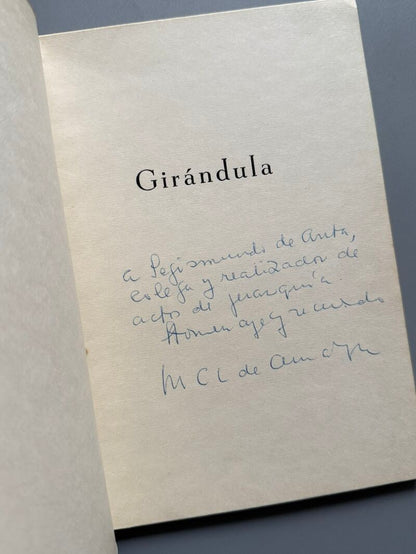 Girándula
a Segismundo de Anta,
colega y realizador de
actos de jerarquía
Homenaje y recuerdo
M C L de